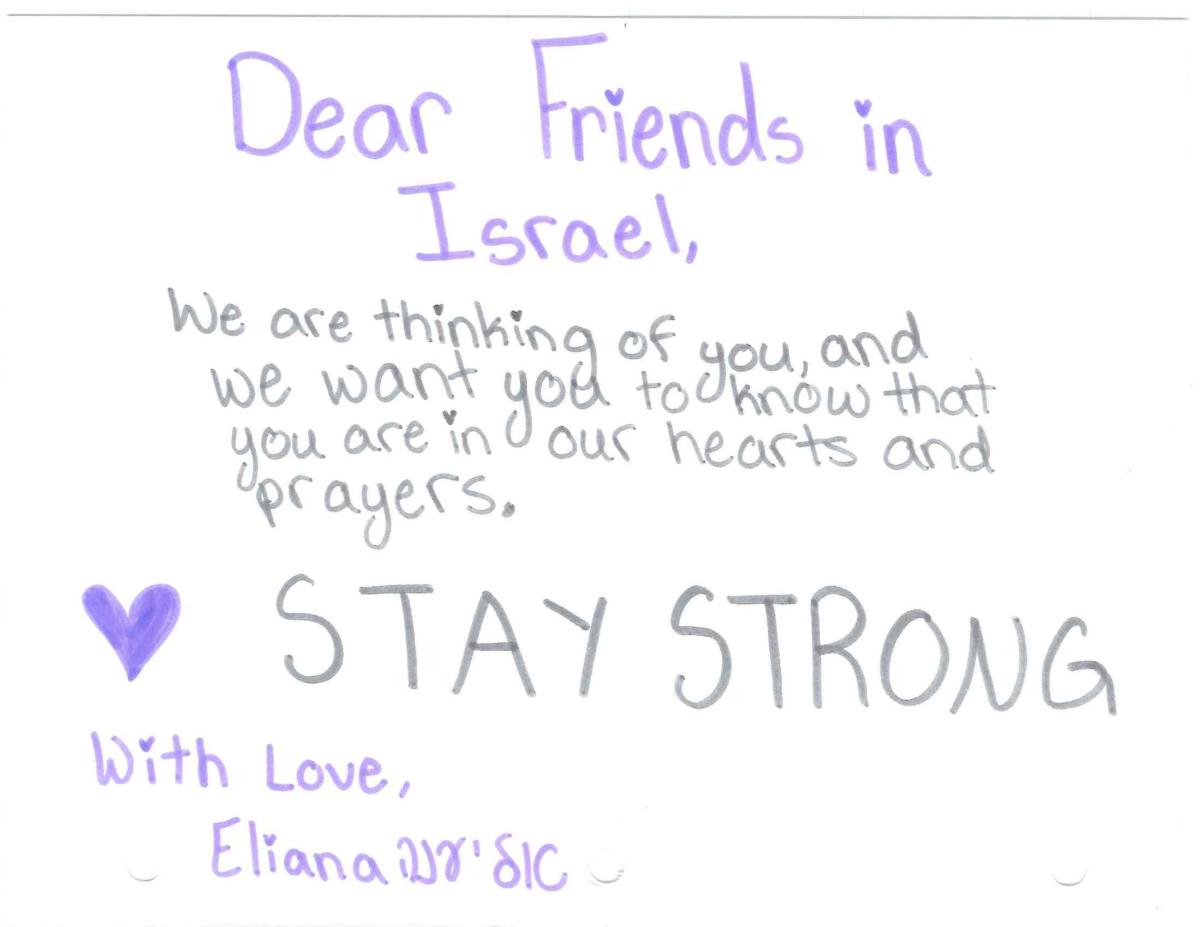 Dear Friends in
Israel,
We are thinking of you, and
we want you to know that
you are in our hearts and
prayers.
STAY STRONG
With Love,
Eliana אליענה